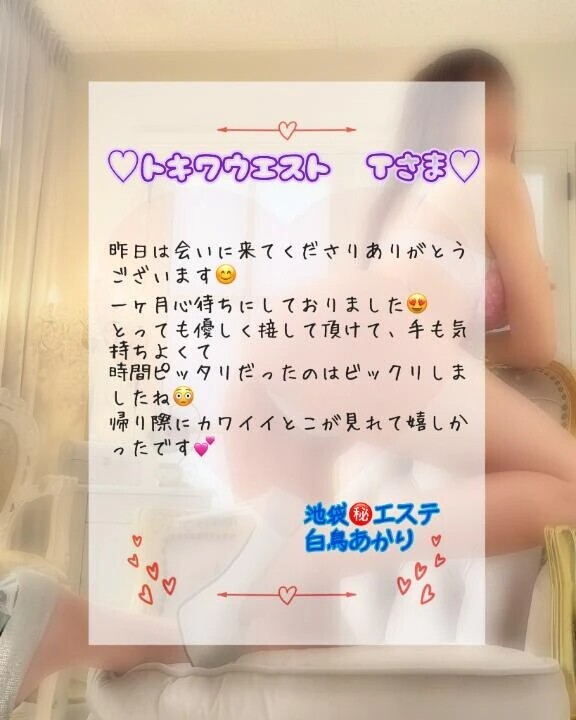 ♡トキワウエスト Tさま♡
昨日は会いに来てくださりありがとう
ございます😊
一ヶ月心待ちにしておりました😍
とっても優しく接して頂けて、手も気
持ちよくて
時間ピッタリだったのはビックリしま
したね😳
帰り際にカワイイとこが見れて嬉しか
ったです💕
池袋㊙エステ
白鳥あかり